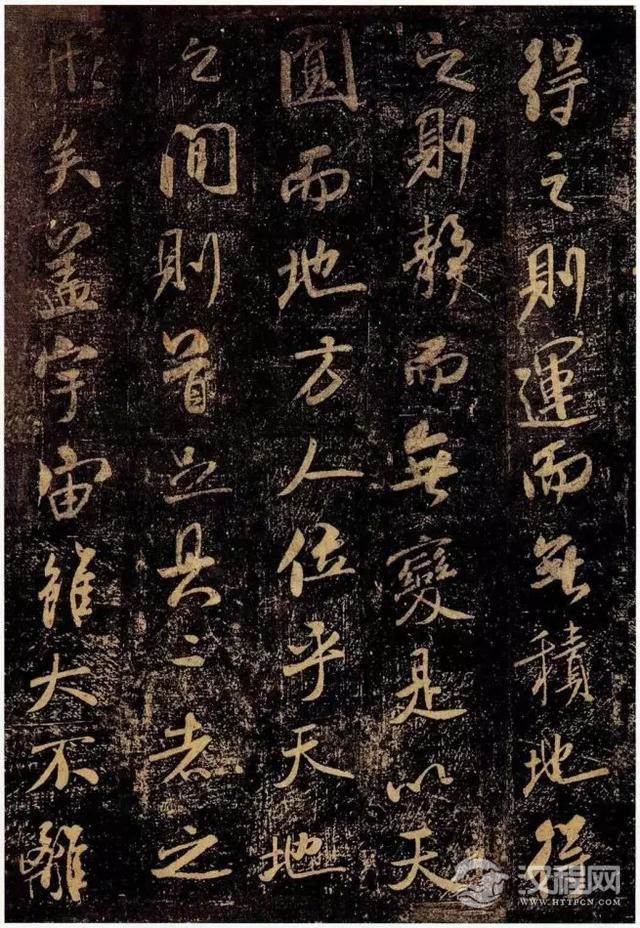 得之則運而無積地得
之則靜而無變是以天
圓而地方人位乎天地
之間則首足具二者之
形矣蓋宇宙雖大不離
汉程网
WWW.HTTPCN.COM